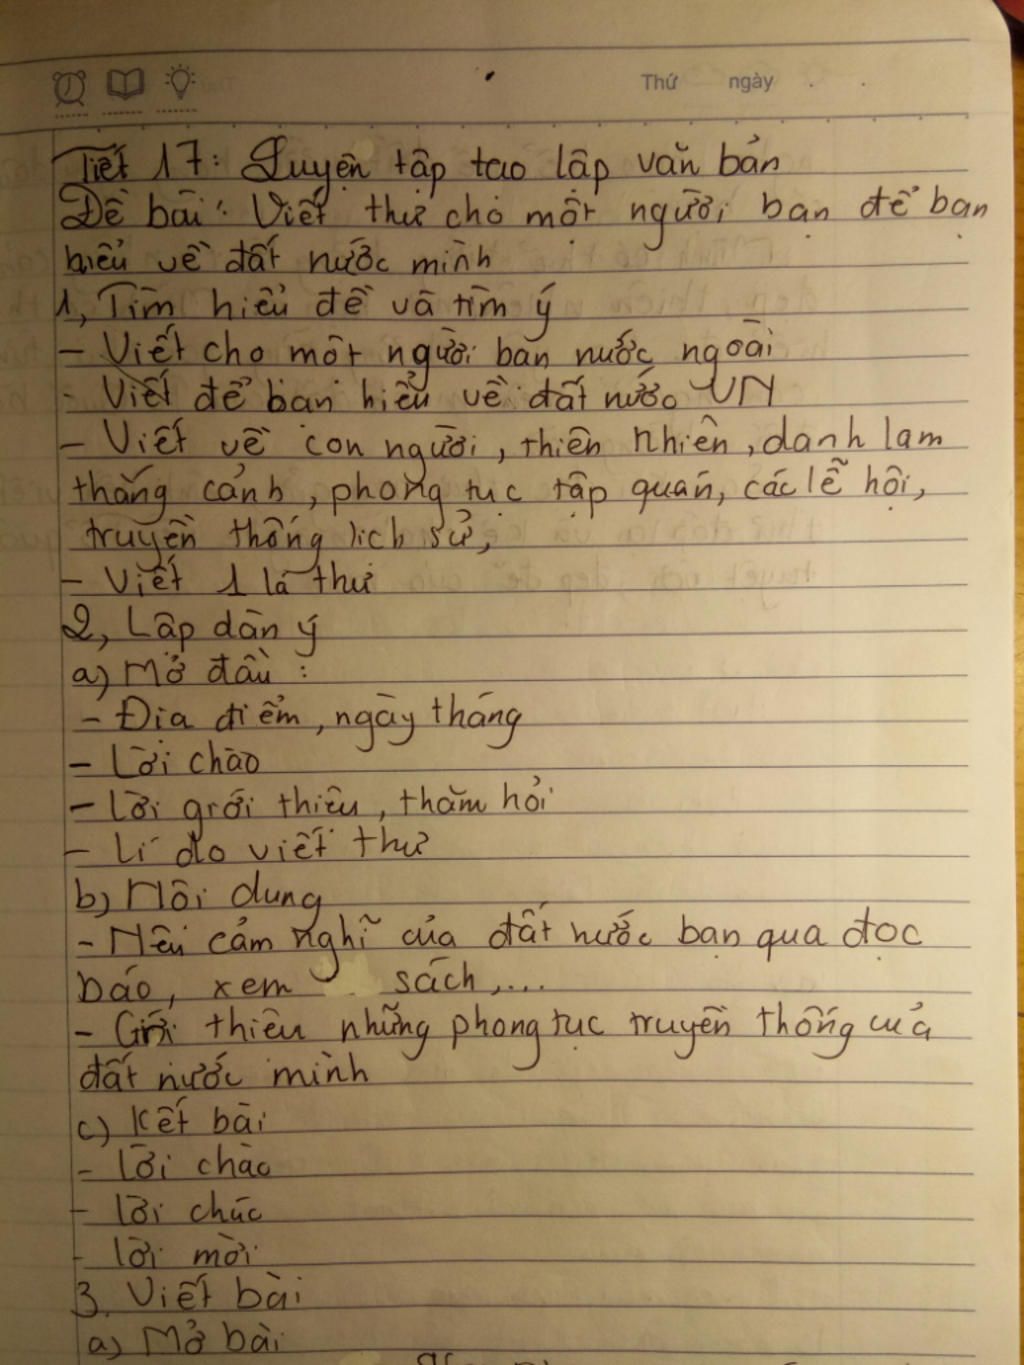 Thứ ngày
Tiết 17: Luyện tập tạo lập văn bản
Đề bài: Viết thư cho một người bạn để bạn
hiểu về đất nước mình
1, Tìm hiểu đề và tìm ý
- Viết cho một người bạn nước ngoài
- Viết để bạn hiểu về đất nước VN
- Viết về con người, thiên nhiên, danh lam
thắng cảnh, phong tục tập quán, các lễ hội,
truyền thống lịch sử,
- Viết 1 lá thư
2, Lập dàn ý
a) Mở đầu :
- Địa điểm, ngày tháng
- Lời chào
- Lời giới thiệu, thăm hỏi
- Lí do viết thư
b) Nội dung
- Nêu cảm nghĩ của đất nước bạn qua đọc
báo, xem sách,...
- Giới thiệu những phong tục truyền thống của
đất nước mình
c) Kết bài
- lời chào
- lời chúc
- lời mời
3. Viết bài
a) Mở bài